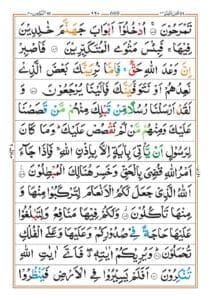 تَمْرَحُوْنَ ۚ اُدْخُلُوْٓا اَبْوَابَ جَهَنَّمَ خٰلِدِيْنَ
فِيْهَا ۚ فَبِئْسَ مَثْوَى الْمُتَكَبِّرِيْنَ فَاصْبِرْ
اِنَّ وَعْدَ اللّٰهِ حَقٌّ ۚ فَاِمَّا نُرِيَنَّكَ بَعْضَ الَّذِيْ
نَعِدُهُمْ اَوْ نَتَوَفَّيَنَّكَ فَاِلَيْنَا يُرْجَعُوْنَ وَلَقَدْ
اَرْسَلْنَا رُسُلًا مِّنْ قَبْلِكَ مِنْهُمْ مَّنْ قَصَصْنَا
عَلَيْكَ وَمِنْهُمْ مَّنْ لَّمْ نَقْصُصْ عَلَيْكَ ۗ وَمَا كَانَ
لِرَسُوْلٍ اَنْ يَّاْتِيَ بِاٰيَةٍ اِلَّا بِاِذْنِ اللّٰهِ ۚ فَاِذَا جَآءَ
اَمْرُ اللّٰهِ قُضِيَ بِالْحَقِّ وَخَسِرَ هُنَالِكَ الْمُبْطِلُوْنَ
اَللّٰهُ الَّذِيْ جَعَلَ لَكُمُ الْاَنْعَامَ لِتَرْكَبُوْا مِنْهَا وَ
مِنْهَا تَاْكُلُوْنَ وَلَكُمْ فِيْهَا مَنَافِعُ وَلِتَبْلُغُوْا
عَلَيْهَا حَاجَةً فِيْ صُدُوْرِكُمْ وَعَلَيْهَا وَعَلَى الْفُلْكِ
تُحْمَلُوْنَ وَيُرِيْكُمْ اٰيٰتِهٖ ۖ فَاَيَّ اٰيٰتِ اللّٰهِ
تُنْكِرُوْنَ اَفَلَمْ يَسِيْرُوْا فِي الْاَرْضِ فَيَنْظُرُوْا